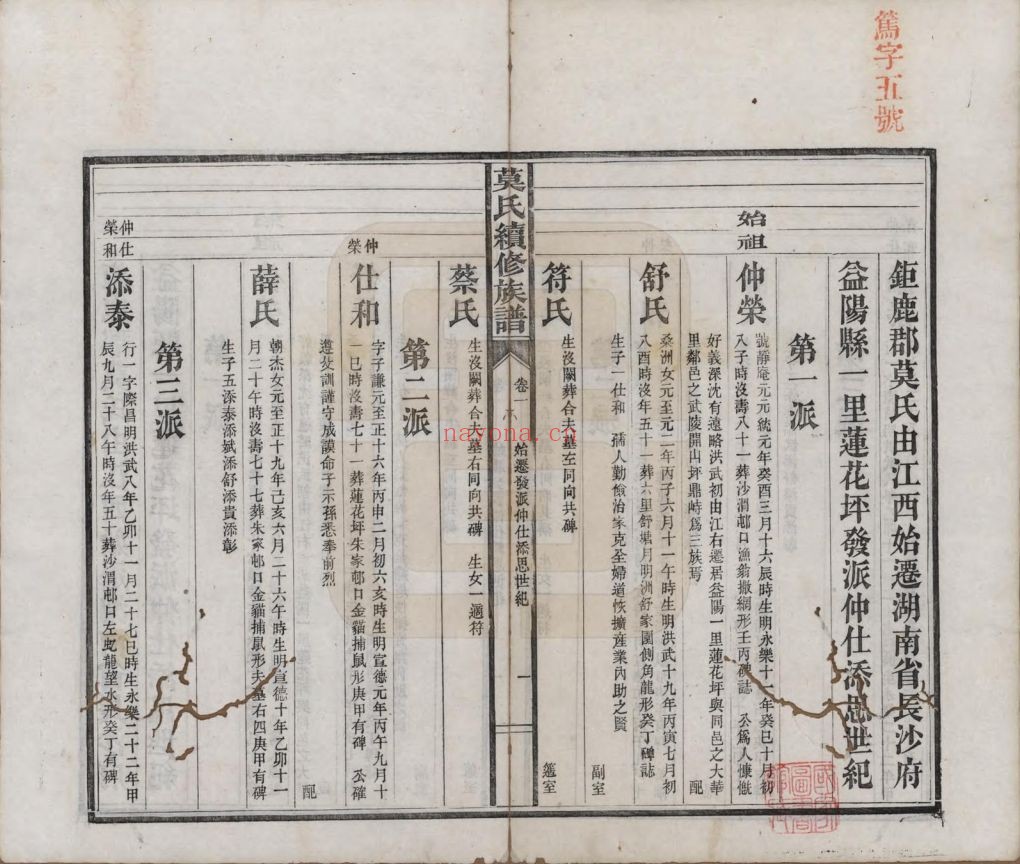 篤字五號
鉅鹿郡莫氏由江西始遷湖南省長沙府
益陽縣一里蓮花坪發派仲仕添思世紀
第一派
始祖
仲榮
號靜庵元元統元年癸酉三月十六辰時生明永樂十一年癸巳十月初
八子時沒壽八十一葬沙渭邨口漁翁撒網形壬丙碑誌 公為人慷慨
好義深沈有遠略洪武初由江右遷居益陽一里蓮花坪與同邑之大華
里鄰邑之武陵開山坪鼎峙為三族焉 配
舒氏
桑洲女元至元二年丙子六月十一午時生明洪武十九年丙寅七月初
八酉時沒年五十一葬六里舒塘月明洲舒家園側角龍形癸丁碑誌
生子一仕和 孺人勤儉治家克全婦道恢擴產業內助之賢
副室
符氏
生沒闕葬合夫墓左同向共碑
簉室
莫氏續修族譜
卷一
始遷發派仲仕添思世紀
一
蔡氏
生沒闕葬合夫墓右同向共碑 生女一適符
第二派
仲榮
仕和
字子謙元至正十六年丙申二月初六亥時生明宣德元年丙午九月十
一巳時沒壽七十一葬蓮花坪朱家邨口金貓捕鼠形庚甲有碑 公確
遵父訓謹守成謨命子示孫悉奉前烈
配
薛氏
朝杰女元至正十九年己亥六月二十六午時生明宣德十年乙卯十一
月二十午時沒壽七十七葬朱家邨口金貓捕鼠形夫墓右四庚甲有碑
生子五添泰添斌添舒添貴添彰
第三派
仲榮
仕和
添泰
行一字際昌明洪武八年乙卯十一月二十七巳時生永樂二十二年甲
辰九月二十八午時沒年五十葬沙渭邨口左虬龍望水形癸丁有碑
nayona.cn